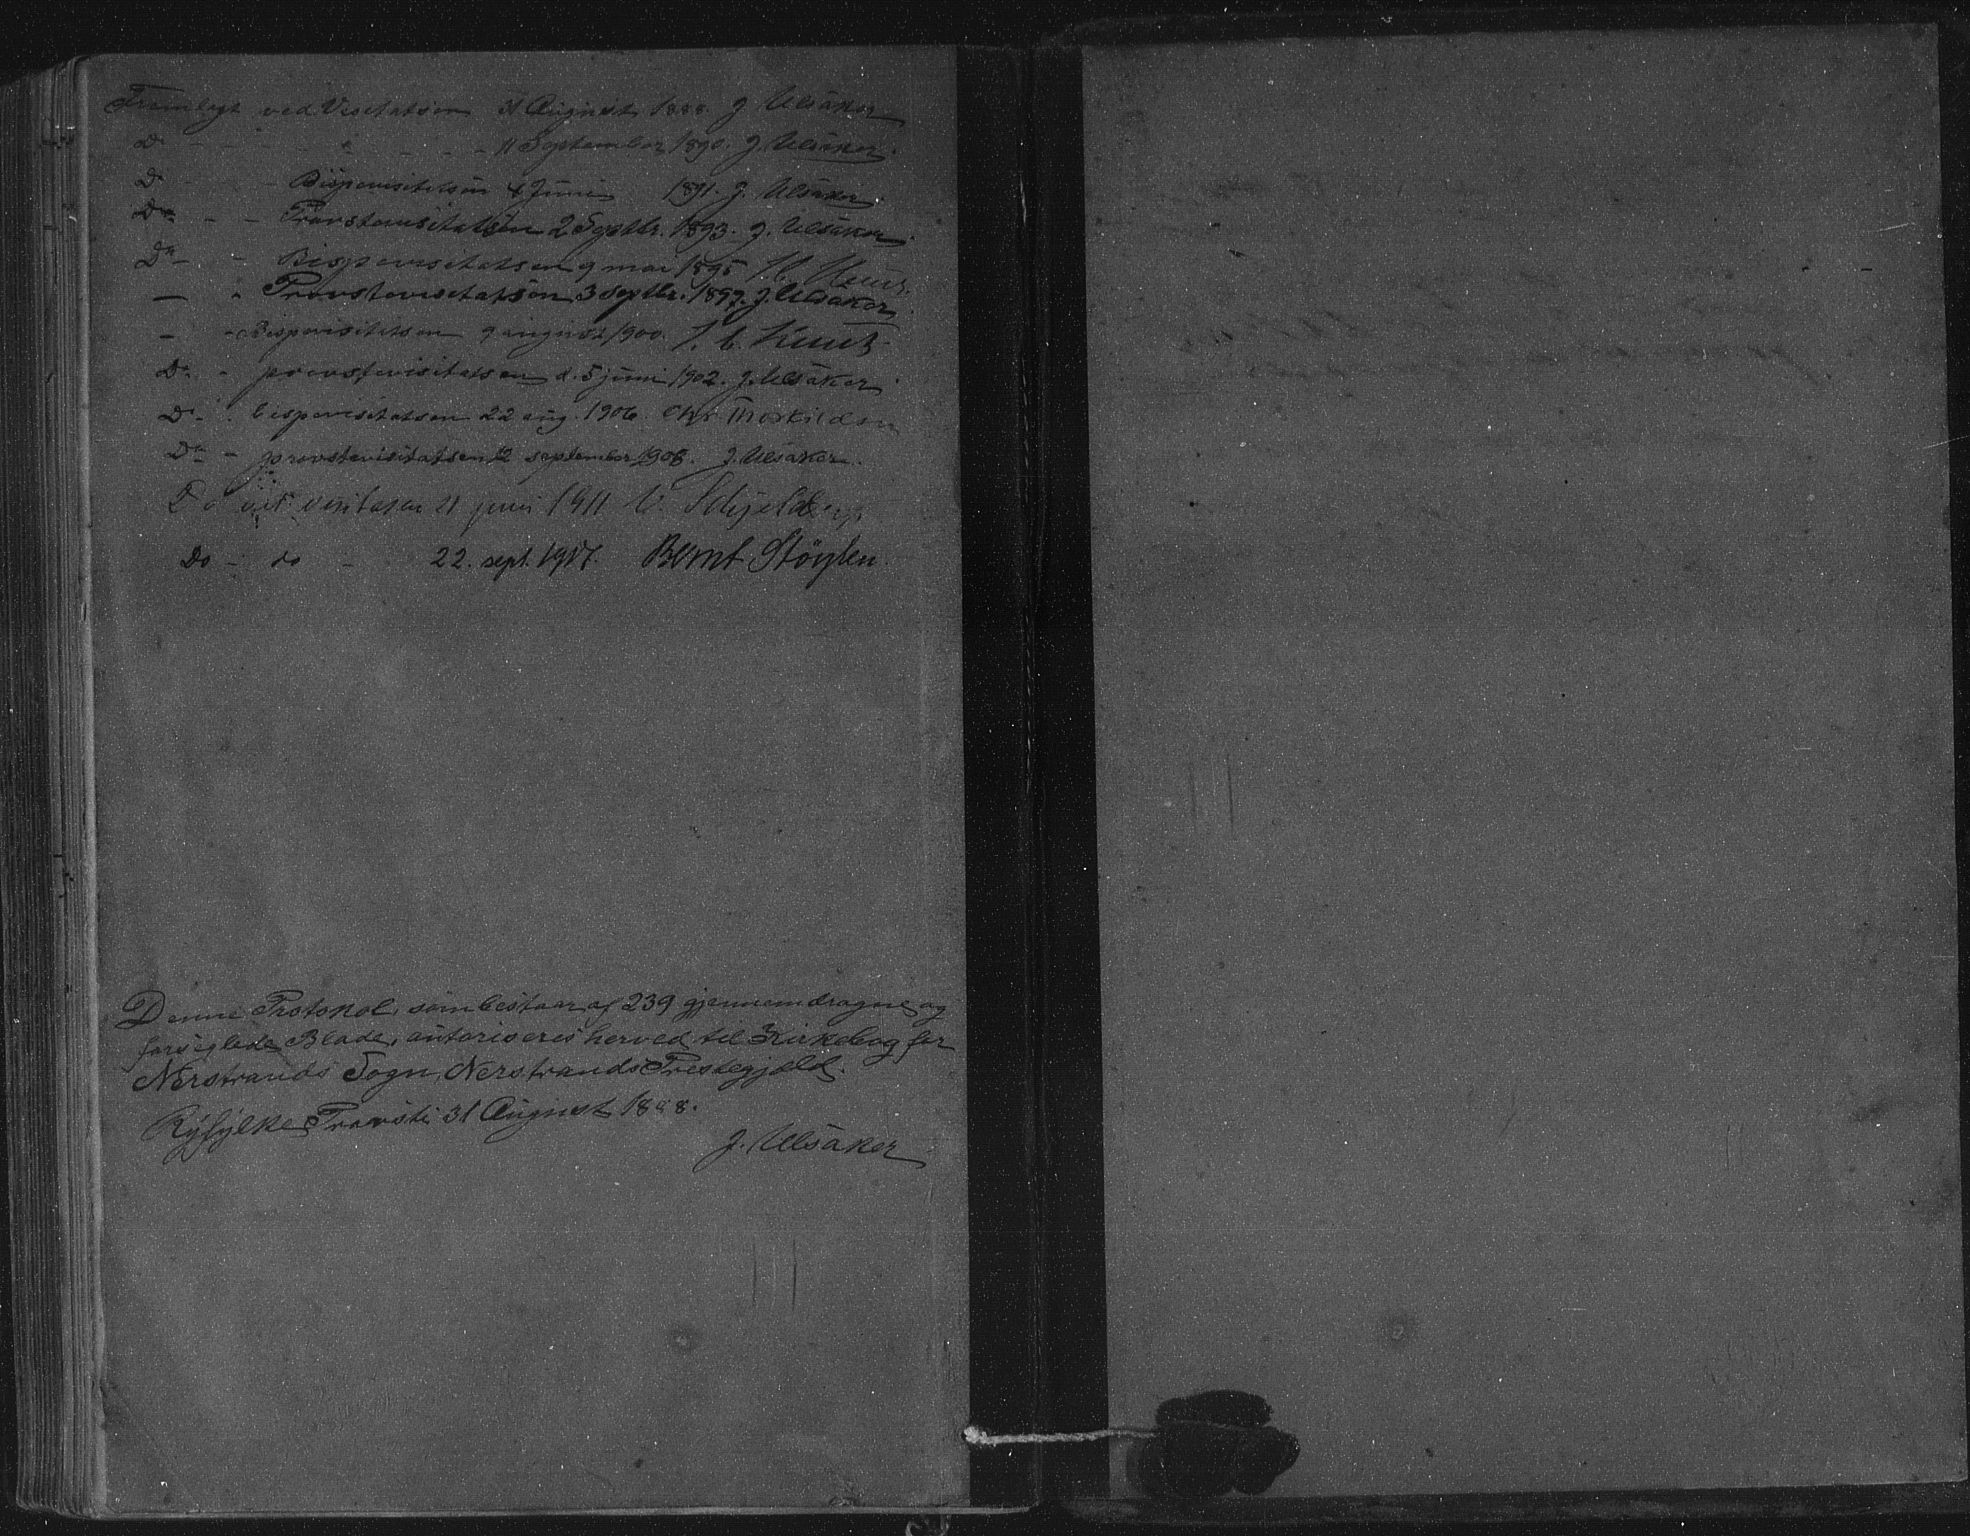 Fremlagt ved Visitatsen 31 August 1888. J Ulsaker
Do - - - " - - - 11 September 1890. J. Ulsaker.
Do - - Bispevisitatsen 4 Juni 1891. J. Ulsaker.
Do - - Provstevisitatsen 2 Septbr. 1893. J. Ulsaker.
Do - - Bispevisitatsen 9 mai 1895
- - Provstevisitatsen 3 Septbr. 1897. J. Ulsaker
- - Bispevisitatsen 9 august 1900.
Do - - provstevisitatsen d. 5 juni 1902. J. Ulsaker.
Do - - bispevisitatsen 22 aug. 1906. Chr. Thorkildsen
Do - - provstevisitatsen 12 september 1908. J. Ulsaker.
Do ved visitasen 21 juni 1911 V. Schjelderup
Do - do - 22. sept. 1917. Bernt Støylen.
Denne Protokol, som bestaar af 239 gjennemdragne og
forseglede Blade, autoriseres herved til Kirkebog for
Nerstrands Sogn, Nerstrands Prestegjæld.
Ryfylke Provsti 31 August 1888.
J. Ulsaker